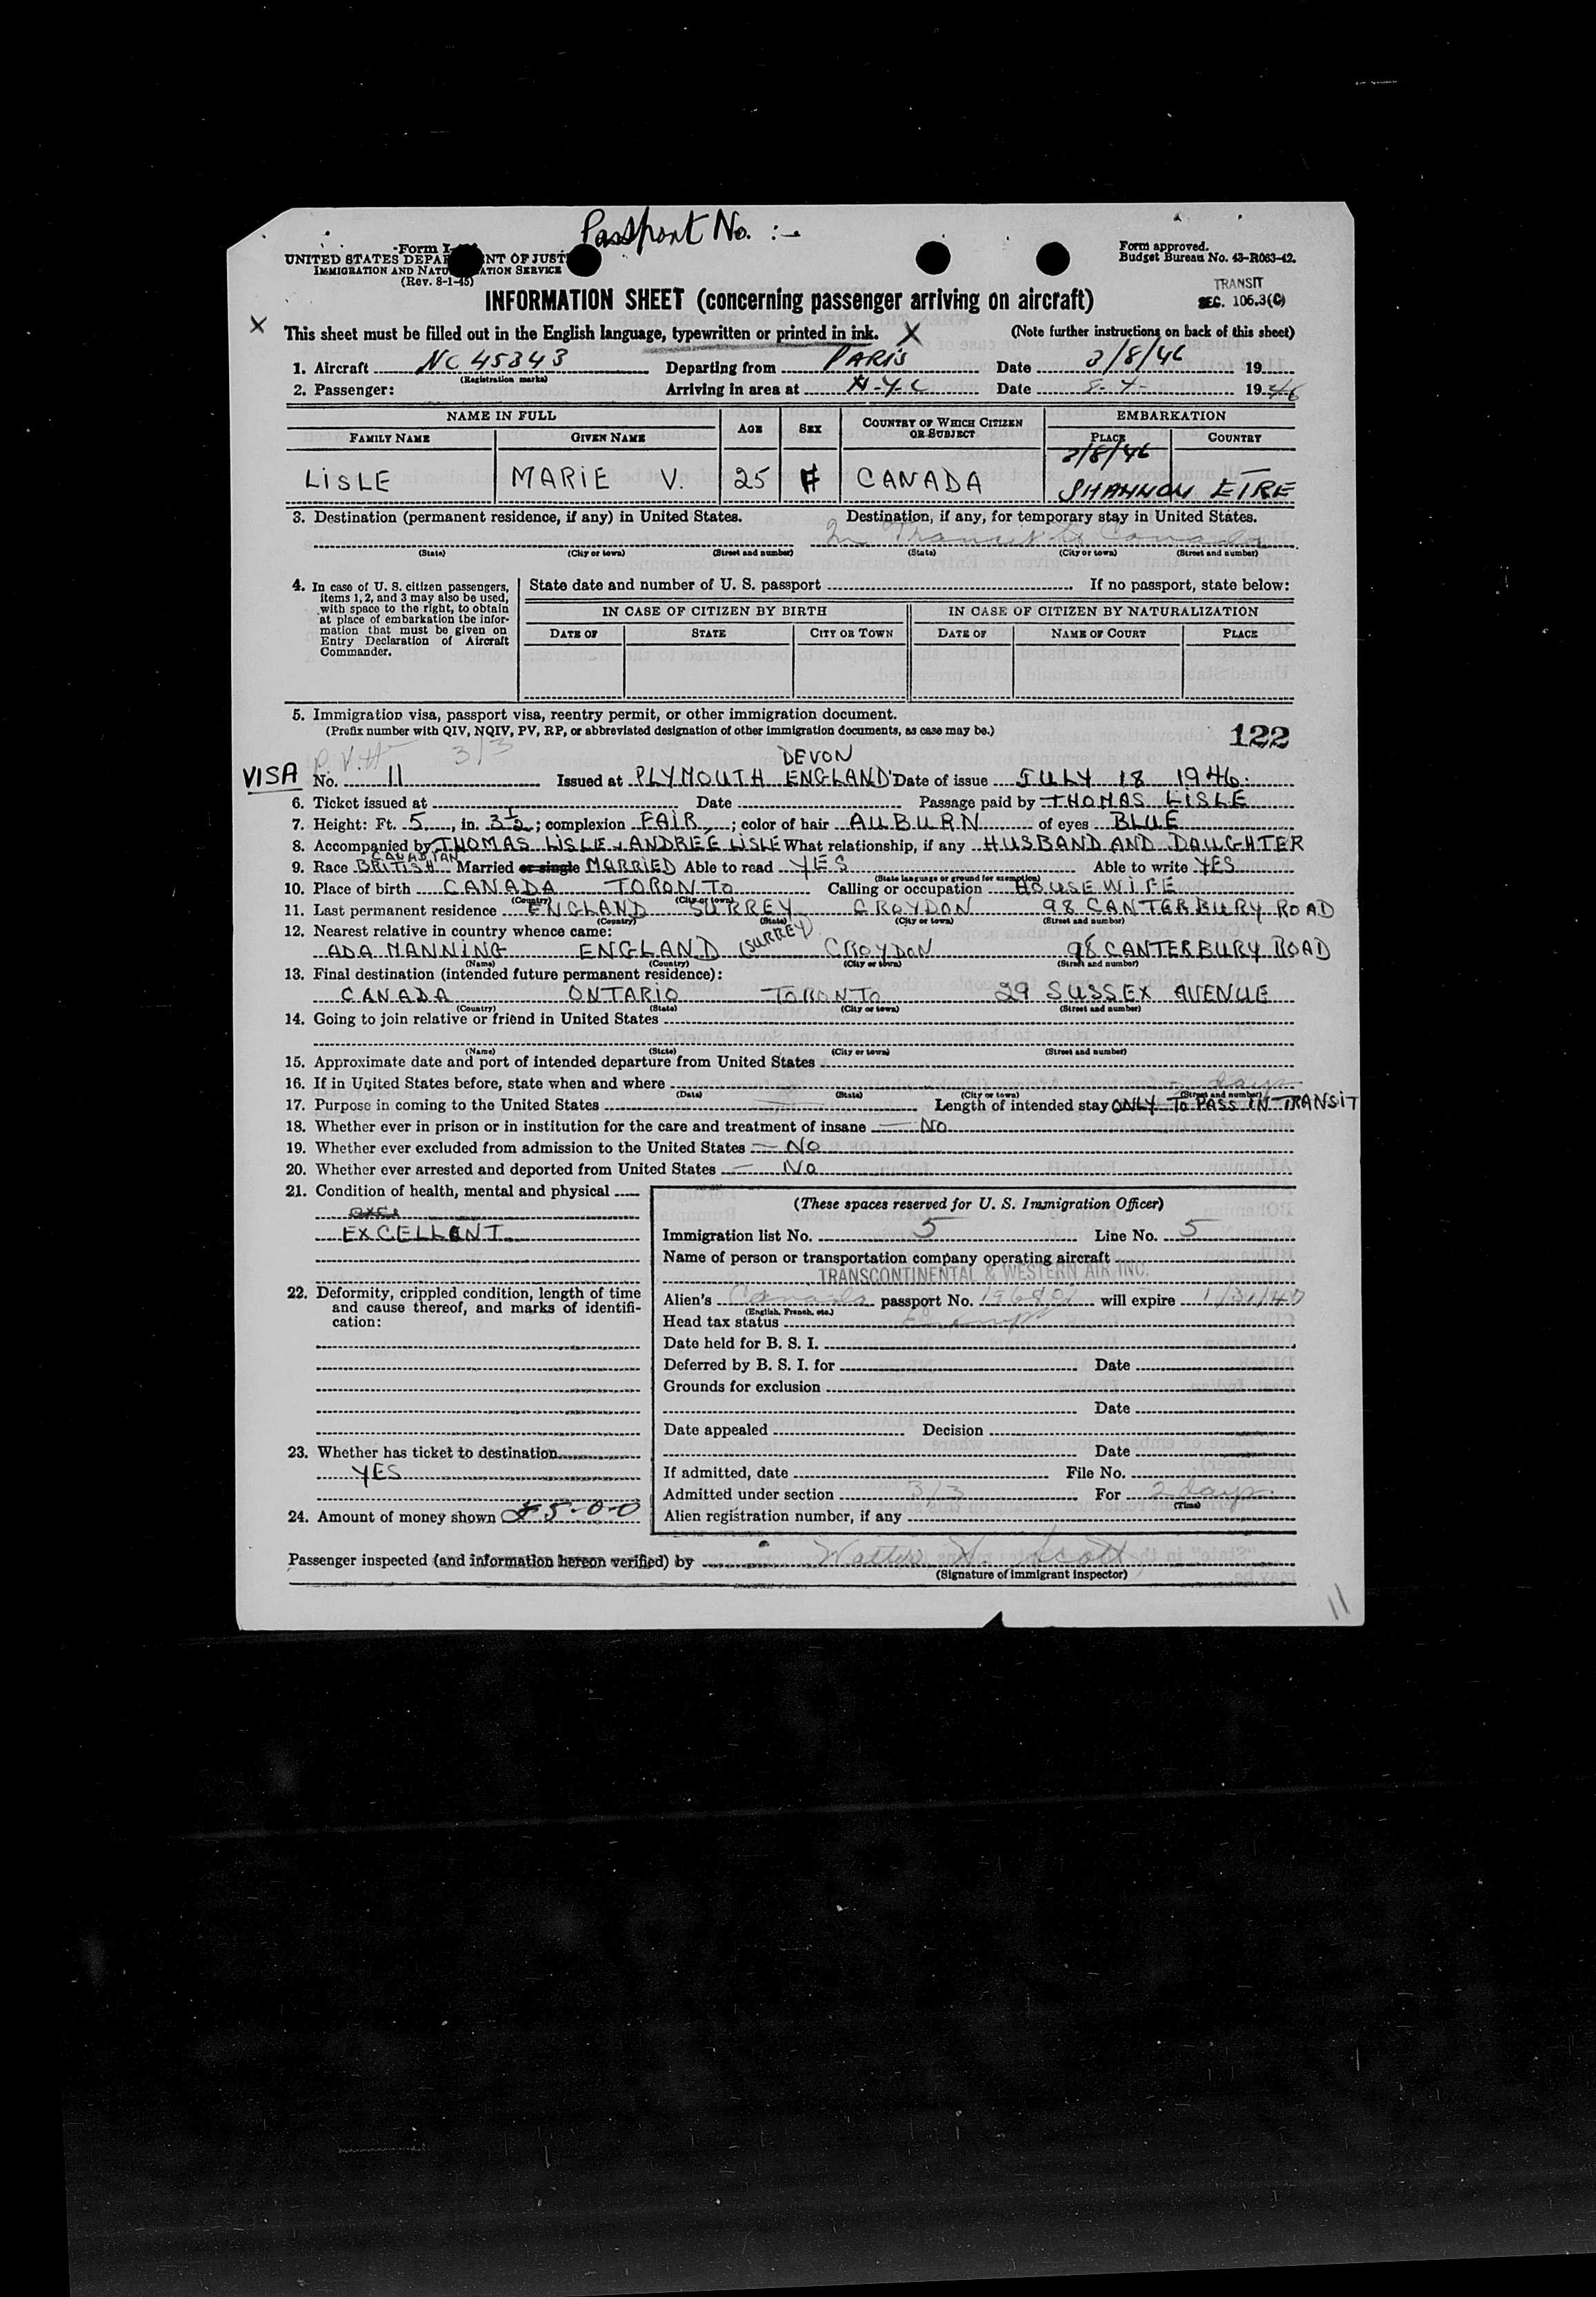 Passport No. :-
Form I-
UNITED STATES DEPAR NT OF JUST
IMMIGRATION AND NATU ATION SERVICE
(Rev. 8-1-45)
Form approved.
Budget Bureau No. 43-R063-42.
TRANSIT
SEC. 105.3(C)
INFORMATION SHEET (concerning passenger arriving on aircraft)
X This sheet must be filled out in the English language, typewritten or printed in ink. X (Note further instructions on back of this sheet)
1. Aircraft NC 45343 Departing from PARIS Date 3/8/46 19
(Registration marks)
2. Passenger: Arriving in area at N-Y-C Date 8-4- 1946
NAME IN FULL AGE SEX COUNTRY OF WHICH CITIZEN OR SUBJECT EMBARKATION
FAMILY NAME GIVEN NAME PLACE COUNTRY
3/8/46
LISLE MARIE V. 25 F CANADA SHANNON EIRE
3. Destination (permanent residence, if any) in United States. Destination, if any, for temporary stay in United States.
In Transit to Canada
(State) (City or town) (Street and number) (State) (City or town) (Street and number)
4. In case of U. S. citizen passengers, items 1, 2, and 3 may also be used, with space to the right, to obtain at place of embarkation the information that must be given on Entry Declaration of Aircraft Commander.
State date and number of U. S. passport If no passport, state below:
IN CASE OF CITIZEN BY BIRTH IN CASE OF CITIZEN BY NATURALIZATION
DATE OF STATE CITY OR TOWN DATE OF NAME OF COURT PLACE
5. Immigration visa, passport visa, reentry permit, or other immigration document.
(Prefix number with QIV, NQIV, PV, RP, or abbreviated designation of other immigration documents, as case may be.) 122
P.V. 3/3 DEVON
VISA No. 11 Issued at PLYMOUTH ENGLAND Date of issue JULY 18 1946.
6. Ticket issued at Date Passage paid by THOMAS LISLE
7. Height: Ft. 5, in. 3½; complexion FAIR; color of hair AUBURN of eyes BLUE
8. Accompanied by THOMAS LISLE + ANDREE LISLE What relationship, if any HUSBAND AND DAUGHTER
CANADIAN
9. Race BRITISH Married or single MARRIED Able to read YES Able to write YES
(State language or ground for exemption)
10. Place of birth CANADA TORONTO Calling or occupation HOUSEWIFE
(Country) (City or town)
11. Last permanent residence ENGLAND SURREY CROYDON 98 CANTERBURY ROAD
(Country) (State) (City or town) (Street and number)
12. Nearest relative in country whence came:
ADA MANNING ENGLAND (SURREY) CROYDON 98 CANTERBURY ROAD
(Name) (Country) (City or town) (Street and number)
13. Final destination (intended future permanent residence):
CANADA ONTARIO TORONTO 29 SUSSEX AVENUE
(Country) (State) (City or town) (Street and number)
14. Going to join relative or friend in United States
(Name) (State) (City or town) (Street and number)
15. Approximate date and port of intended departure from United States
16. If in United States before, state when and where
days
(Date) (State) (City or town) (Street and number)
17. Purpose in coming to the United States Length of intended stay ONLY TO PASS IN TRANSIT
18. Whether ever in prison or in institution for the care and treatment of insane — No
19. Whether ever excluded from admission to the United States — No
20. Whether ever arrested and deported from United States — No
21. Condition of health, mental and physical
EXCELLENT
22. Deformity, crippled condition, length of time and cause thereof, and marks of identification:
23. Whether has ticket to destination
YES
24. Amount of money shown £5-0-0
(These spaces reserved for U. S. Immigration Officer)
Immigration list No. 5 Line No. 5
Name of person or transportation company operating aircraft
TRANSCONTINENTAL & WESTERN AIR, INC.
Alien's Canada passport No. will expire
(English, French, etc.)
Head tax status
Date held for B. S. I.
Deferred by B. S. I. for Date
Grounds for exclusion
Date
Date appealed Decision
Date
If admitted, date File No.
Admitted under section 3/3 For 2 days
(Time)
Alien registration number, if any
Passenger inspected (and information hereon verified) by Walter H. Scott
(Signature of immigrant inspector)
11